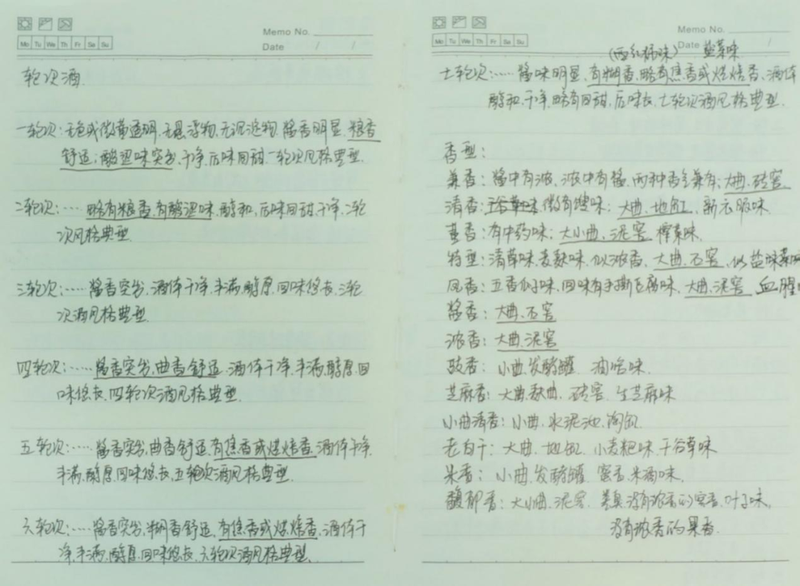 Memo No.
Mo Tu We Th Fr Sa Su
Date / /
轮次酒
一轮次:无色或微黄透明,无悬浮物,无沉淀物,酱香明显,粮香
舒适;酸涩味突出,干净,后味回甜,一轮次风格典型.
二轮次:……略有粮香,有酸涩味,醇和,后味回甜,干净,二轮
次风格典型.
三轮次:……酱香突出,酒体干净,丰满,醇厚,回味悠长,三轮
次酒风格典型.
四轮次:……酱香突出,曲香舒适,酒体干净,丰满,醇厚,回
味悠长,四轮次酒风格典型.
五轮次:……酱香突出,曲香舒适,有焦香或烘焙香,酒体干净,
丰满,醇厚,回味悠长,五轮次酒风格典型.
六轮次:……酱香突出,糊香舒适,有焦香或烘焙香,酒体干
净,丰满,醇厚,回味悠长,六轮次酒风格典型.
Memo No.
Mo Tu We Th Fr Sa Su
Date / /
(西红柿味) 盐菜味
七轮次:……酱味明显,有糊香,略有焦香或烘焙香,酒体
醇和,干净,略有回甜,后味长,七轮次酒风格典型.
香型:
兼香:酱中有浓,浓中有酱,两种香气兼有;大曲,砖窖
清香:微有馊味;大曲,地缸,新衣服味
董香:有中药味;大小曲,泥窖,榨菜味
特型:清草味,麦麸味,似浓香,大曲,石窖,似盐味
凤香:五香瓜子味,回味有手撕豆腐味,大曲,泥窖,血腥
酱香:大曲,石窖
浓香:大曲,泥窖
豉香:小曲,发酵罐 油哈味
芝麻香:大曲,麸曲,砖窖 生芝麻味
小曲清香:小曲,水泥池,陶缸
老白干:大曲,地缸,小麦粑味,干谷草味
米香:小曲,发酵罐 蜜香,米酒味
馥郁香:大小曲,泥窖,没有浓香的窖香,叶子味,
没有浓香的果香.